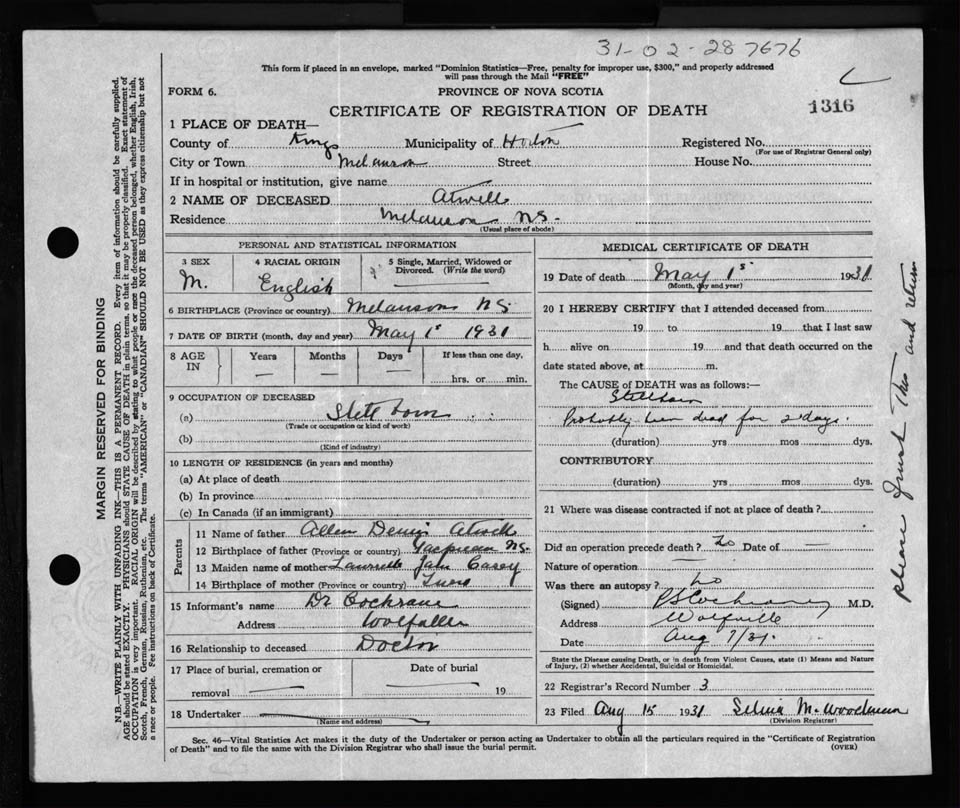 31-02-287676
This form if placed in an envelope, marked "Dominion Statistics—Free, penalty for improper use, $300," and properly addressed
will pass through the Mail "FREE"
FORM 6. PROVINCE OF NOVA SCOTIA
CERTIFICATE OF REGISTRATION OF DEATH 1316
1 PLACE OF DEATH—
County of Kings Municipality of Horton Registered No.
(For use of Registrar General only)
City or Town Melanson Street House No.
If in hospital or institution, give name
2 NAME OF DECEASED Atwell
Residence Melanson N.S.
(Usual place of abode)
PERSONAL AND STATISTICAL INFORMATION
3 SEX 4 RACIAL ORIGIN 5 Single, Married, Widowed or
Divorced. (Write the word)
M. English —
6 BIRTHPLACE (Province or country) Melanson N S
7 DATE OF BIRTH (month, day and year) May 1st 1931
8 AGE IN Years Months Days If less than one day,
— — — hrs. or min.
9 OCCUPATION OF DECEASED
(a) born
(Trade or occupation or kind of work)
(b)
(Kind of industry)
10 LENGTH OF RESIDENCE (in years and months)
(a) At place of death
(b) In province
(c) In Canada (if an immigrant)
Parents
11 Name of father Allen Atwell
12 Birthplace of father (Province or country) N.S.
13 Maiden name of mother Casey
14 Birthplace of mother (Province or country)
15 Informant's name Dr Cochrane
Address
16 Relationship to deceased Doctor
17 Place of burial, cremation or Date of burial
removal — — 19
18 Undertaker
(Name and address)
MEDICAL CERTIFICATE OF DEATH
19 Date of death May 1st 1931
(Month, day and year)
20 I HEREBY CERTIFY that I attended deceased from
19 to 19 that I last saw
h alive on 19 and that death occurred on the
date stated above, at m.
The CAUSE OF DEATH was as follows:—
Stillborn
Probably been dead for 2 days.
(duration) yrs mos dys.
CONTRIBUTORY
(duration) yrs mos dys.
21 Where was disease contracted if not at place of death?
Did an operation precede death? No Date of —
Nature of operation —
Was there an autopsy? No
(Signed) Cochrane M.D.
Address Wolfville
Date Aug 7/31.
State the Disease causing Death, or in death from Violent Causes, state (1) Means and Nature
of Injury, (2) whether Accidental, Suicidal or Homicidal.
22 Registrar's Record Number 3
23 Filed Aug 15 1931 M. Woodman
(Division Registrar)
Sec. 46—Vital Statistics Act makes it the duty of the Undertaker or person acting as Undertaker to obtain all the particulars required in the "Certificate of Registration
of Death" and to file the same with the Division Registrar who shall issue the burial permit. (OVER)
MARGIN RESERVED FOR BINDING
N.B.—WRITE PLAINLY WITH UNFADING INK—THIS IS A PERMANENT RECORD. Every item of information should be carefully supplied.
AGE should be stated EXACTLY. PHYSICIANS should STATE CAUSE OF DEATH in plain terms, so that it may be properly classified. Exact statement of
OCCUPATION is very important. RACIAL ORIGIN will be described by stating to what people or race the deceased person belonged, whether English, Irish,
Scotch, French, German, Russian, Ruthenian, etc. The terms "AMERICAN" or "CANADIAN" SHOULD NOT BE USED as they express citizenship but not
a race or people. See instructions on back of Certificate.
Please finish This and return